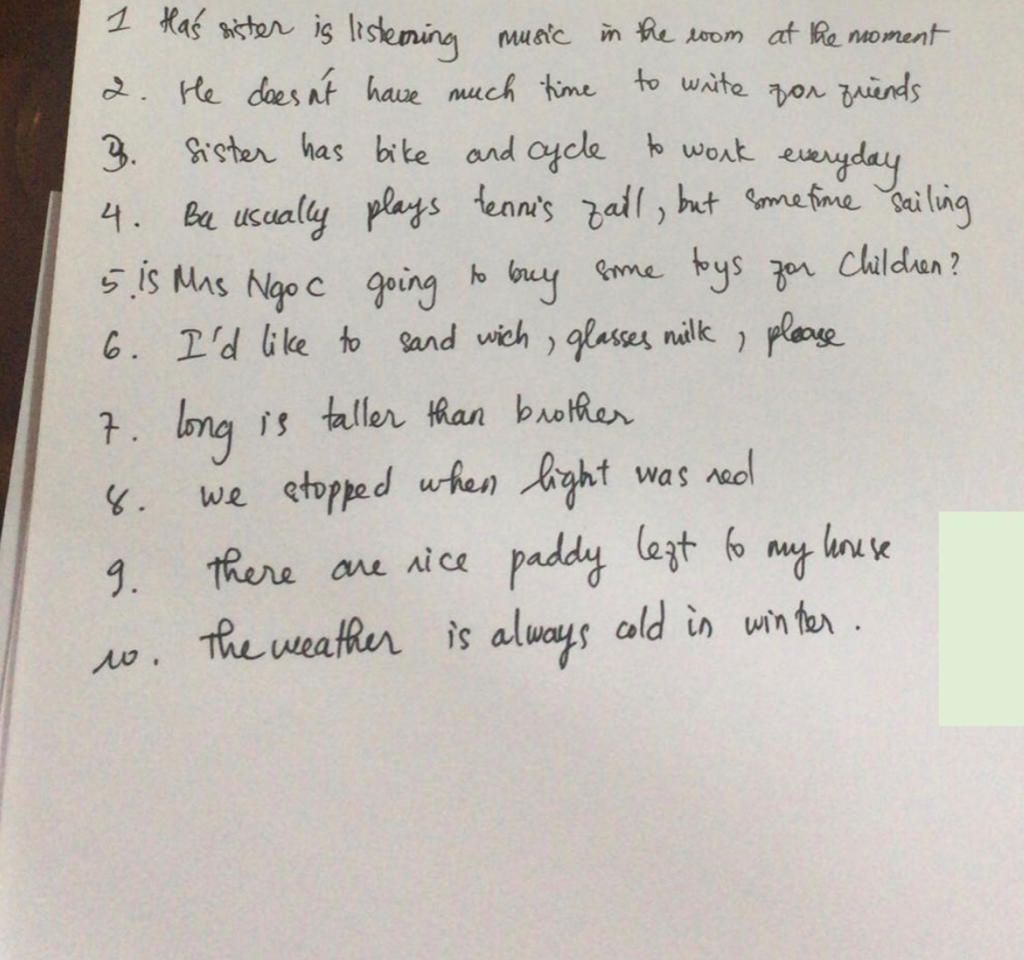 1 Ha's sister is listening music in the room at the moment
2. He doesn't have much time to write for friends
3. Sister has bike and cycle to work everyday
4. Ba usually plays tennis fall, but sometime sailing
5. is Mrs Ngoc going to buy some toys for Children?
6. I'd like to sand wich, glasses milk, please
7. long is taller than brother
8. we stopped when light was red
9. there are rice paddy left to my house
10. the weather is always cold in winter.